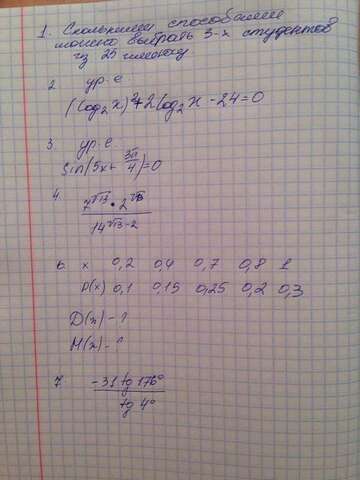 1. Сколькими способами
можно выбрать 3-х студентов
из 25 имеющ
2. ур. е.
(log₂x)²+2log₂x -24=0
3. ур. е.
sin(5x+ 3π/4)=0
4. 7^√13 • 2^√13 / 14^√13-2
6 x 0,2 0,4 0,7 0,8 1
P(x) 0,1 0,15 0,25 0,2 0,3
D(x) - ?
M(x) - ?
7. -31 tg 176° / tg 4°